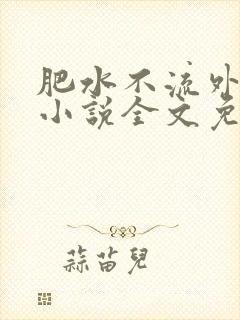 肥水不流外
小说全文免
蒜苗儿